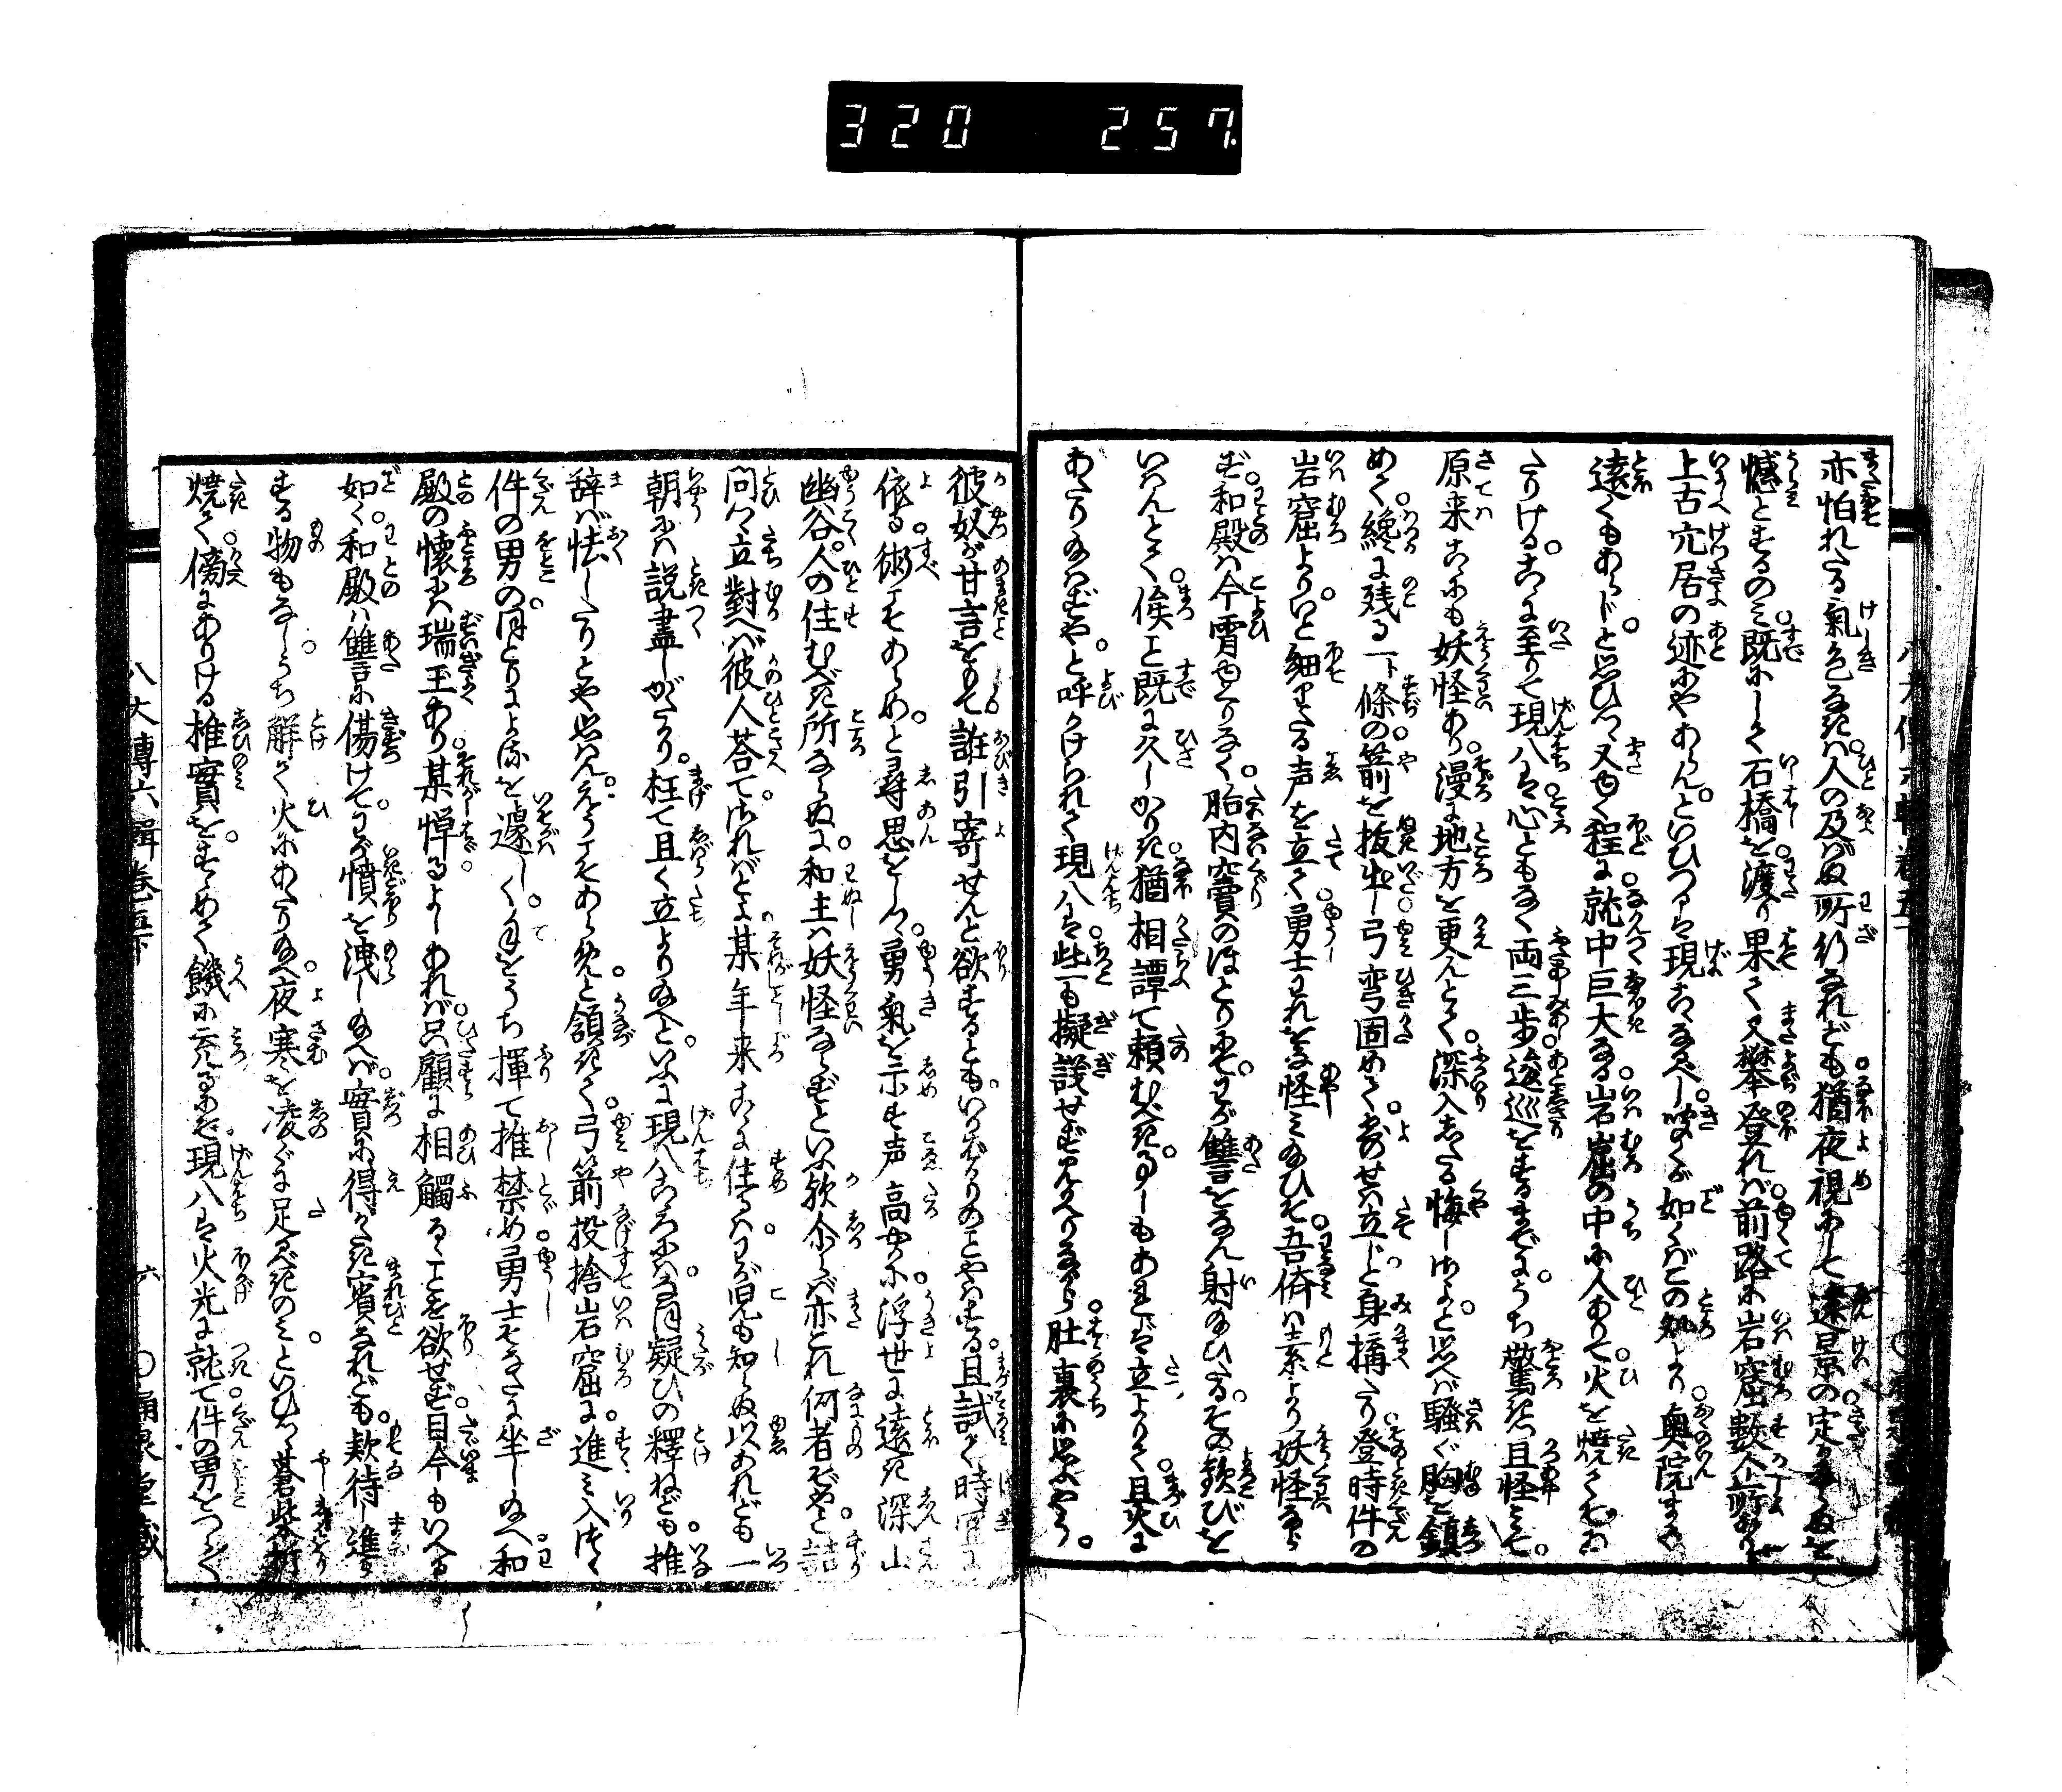 320 257
亦怕れたる氣色なきハ人の及ばぬ所行なれども猶夜視あして遠景の定かならぬを
憾とするのミ既にして石橋を渡り果て又攀登れバ前路に岩窟數个所あり
上古穴居の迹にやあらんといひつるハ現さなるべし聞くが如くバこの処より奥院まで
遠くもあらじと思ひつゝ又ゆく程に就中巨大なる岩窟の中に人ありて火を焼てぞゐ
たりけるこゝに至りて現八は心ともなく両三歩逡巡をするまでにうち驚き且怪ミて
原来こゝにも妖怪あり漫に地方を更んとて深入したる悔しさよと思へバ騒ぐ胸を鎮
めて纔に残る一條の箭を抜出し弓弯固めてよせバ立じと身構たり登時件の
岩窟よりいと細やかなる声を立て勇士われをな怪ミ給ひそ吾儕ハ素より妖怪なら
ず和殿ハ今宵ゆくりなく胎内竇のほとりにてわが讐をなん射給ひたるその歓びを
いはんとて俟こと既に久しかりき猶相譚て頼むべき事しもあるに立よりて且火に
あたり給はずやと呼かけられて現八は些も擬議せず見かへりながら肚裏に思ふやう
彼奴が甘言をもて誑引寄せんと欲するともいかばかりのことやはある且試て時宜に
依る術こそあらめと尋思をしつ勇氣を示す声高やかに浮世に遠き深山
幽谷人の住むべき所ならぬに和主ハ妖怪ならずといふ歟介らバ亦これ何者ぞやと詰
問つゝ立對へバ彼人荅てさればとよ某年来こゝに住るハわが兒も知らぬ以あれども一
朝にハ説盡しがたかり枉て且く立より給へといふに現八こゝろにハなほ疑ひの釋ねども推
辞バ怯したりとや思はんえうこそあらめと領きて弓箭投捨岩窟に進ミ入つゝ
件の男のほとりによるを遽しく手をうち揮て推禁め勇士そなたに坐し給へ和
殿の懐にハ瑞玉あり某憚るよしあれバ只顧に相觸るゝことを欲せず目今もいへる
如く和殿ハ讐に傷けてわが憤を洩し給へバ實に得がたき賓なれども欵待し進ら
する物もなしうち解て火にあたり給へ夜寒を凌ぐに足るべきのミといひつゝ蒼柴折
焼て傍にありける椎實をすゝめて饑に充るにぞ現八は火光に就て件の男をつら〳〵
八犬傳六輯卷五下
六